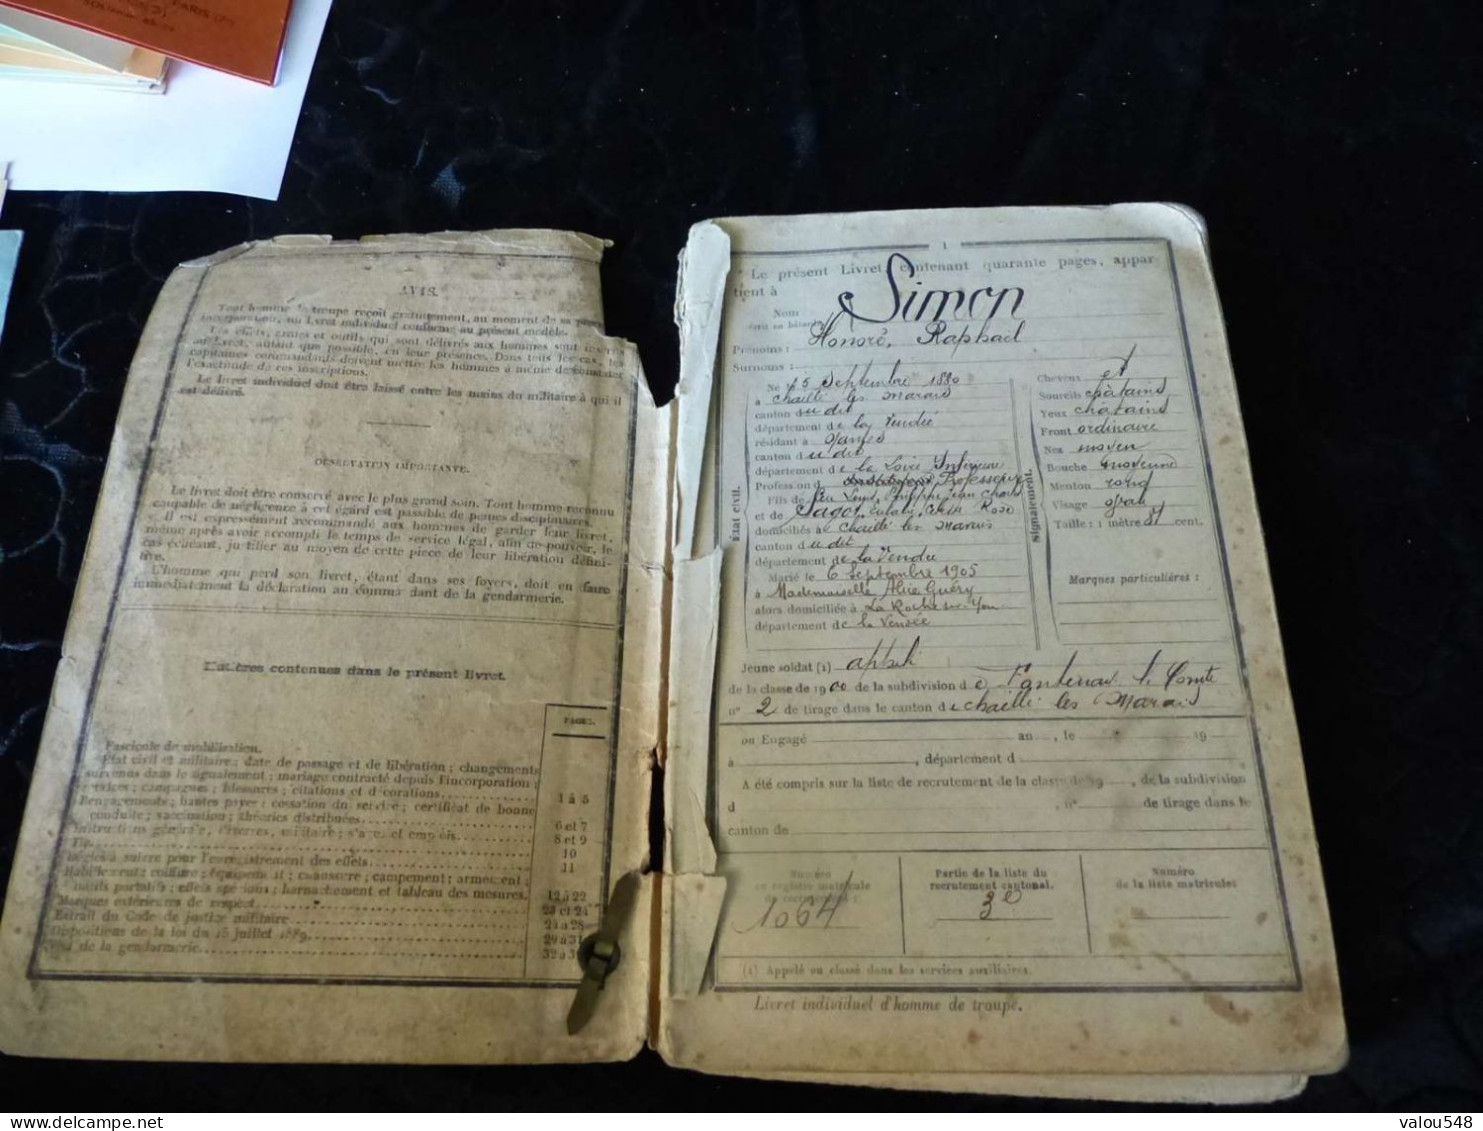 PARIS
AVIS.
Tout homme de troupe reçoit gratuitement, au moment de sa
incorporation, un Livret individuel conforme au présent modèle.
Les effets, armes et outils qui sont délivrés aux hommes sont inscrits
au Livret, autant que possible, en leur présence. Dans tous les cas, les
capitaines commandants doivent mettre les hommes à même de constater
l'exactitude de ces inscriptions.
Le livret individuel doit être laissé entre les mains du militaire à qui il
est délivré.
OBSERVATION IMPORTANTE.
Le livret doit être conservé avec le plus grand soin. Tout homme reconnu
coupable de négligence à cet égard est passible de peines disciplinaires.
Il est expressément recommandé aux hommes de garder leur livret,
même après avoir accompli le temps de service légal, afin de pouvoir, le
cas échéant, justifier au moyen de cette pièce de leur libération défini-
tive.
L'homme qui perd son livret, étant dans ses foyers, doit en faire
immédiatement la déclaration au commandant de la gendarmerie.
Matières contenues dans le présent livret.
PAGES.
Fascicule de mobilisation.
État civil et militaire; date de passage et de libération; changements
survenus dans le signalement; mariage contracté depuis l'incorporation;
services; campagnes; blessures; citations et décorations
1 à 5
Rengagements; hautes payes; cessation du service; certificat de bonne
conduite; vaccination; théories distribuées
6 et 7
Instructions générale, diverses, militaire; stages et emplois
8 et 9
Tir
10
Règles à suivre pour l'enregistrement des effets
11
Habillement; coiffure; équipement; chaussure; campement; armement;
outils portatifs; effets spéciaux; harnachement et tableau des mesures.
12 à 22
Marques extérieures de respect
23 et 24
Extrait du Code de justice militaire
24 à 28
Dispositions de la loi du 15 juillet 1889
29 à 31
de la gendarmerie
1
Le présent Livret, contenant quarante pages, appar
tient à
Nom Simon
Prénoms : Honoré, Raphaël
Surnoms :
État civil.
Né le 15 Septembre 1880
à Chaillé les Marais
canton du dit
département de la Vendée
résidant à Nantes
canton du dit
département de la Loire Inférieure
Profession d Professeur
Fils de feu Louis, Philippe, Jean Charles
et de Sagot, Eulalie, Rose
domiciliés à Chaillé les Marais
canton du dit
département de la Vendée
Marié le 6 Septembre 1905
à Mademoiselle Alice Guéry
alors domiciliée à La Roche sur Yon
département de la Vendée
Signalement.
Cheveux et
Sourcils châtains
Yeux châtains
Front ordinaire
Nez moyen
Bouche moyenne
Menton rond
Visage oval
Taille : 1 mètre 51 cent.
Marques particulières :
Jeune soldat (1) appelé
de la classe de 1900 de la subdivision de Fontenay le Comte
n° 2 de tirage dans le canton de Chaillé les Marais
ou Engagé au , le 19
à , département d
A été compris sur la liste de recrutement de la classe de 19 , de la subdivision
d , n° de tirage dans le
canton de
Numéro
au registre matricule
du recrutement :
1064
Partie de la liste du
recrutement cantonal.
3e
Numéro
de la liste matricules
(1) Appelé ou classé dans les services auxiliaires.
Livret individuel d'homme de troupe.
1
valou548